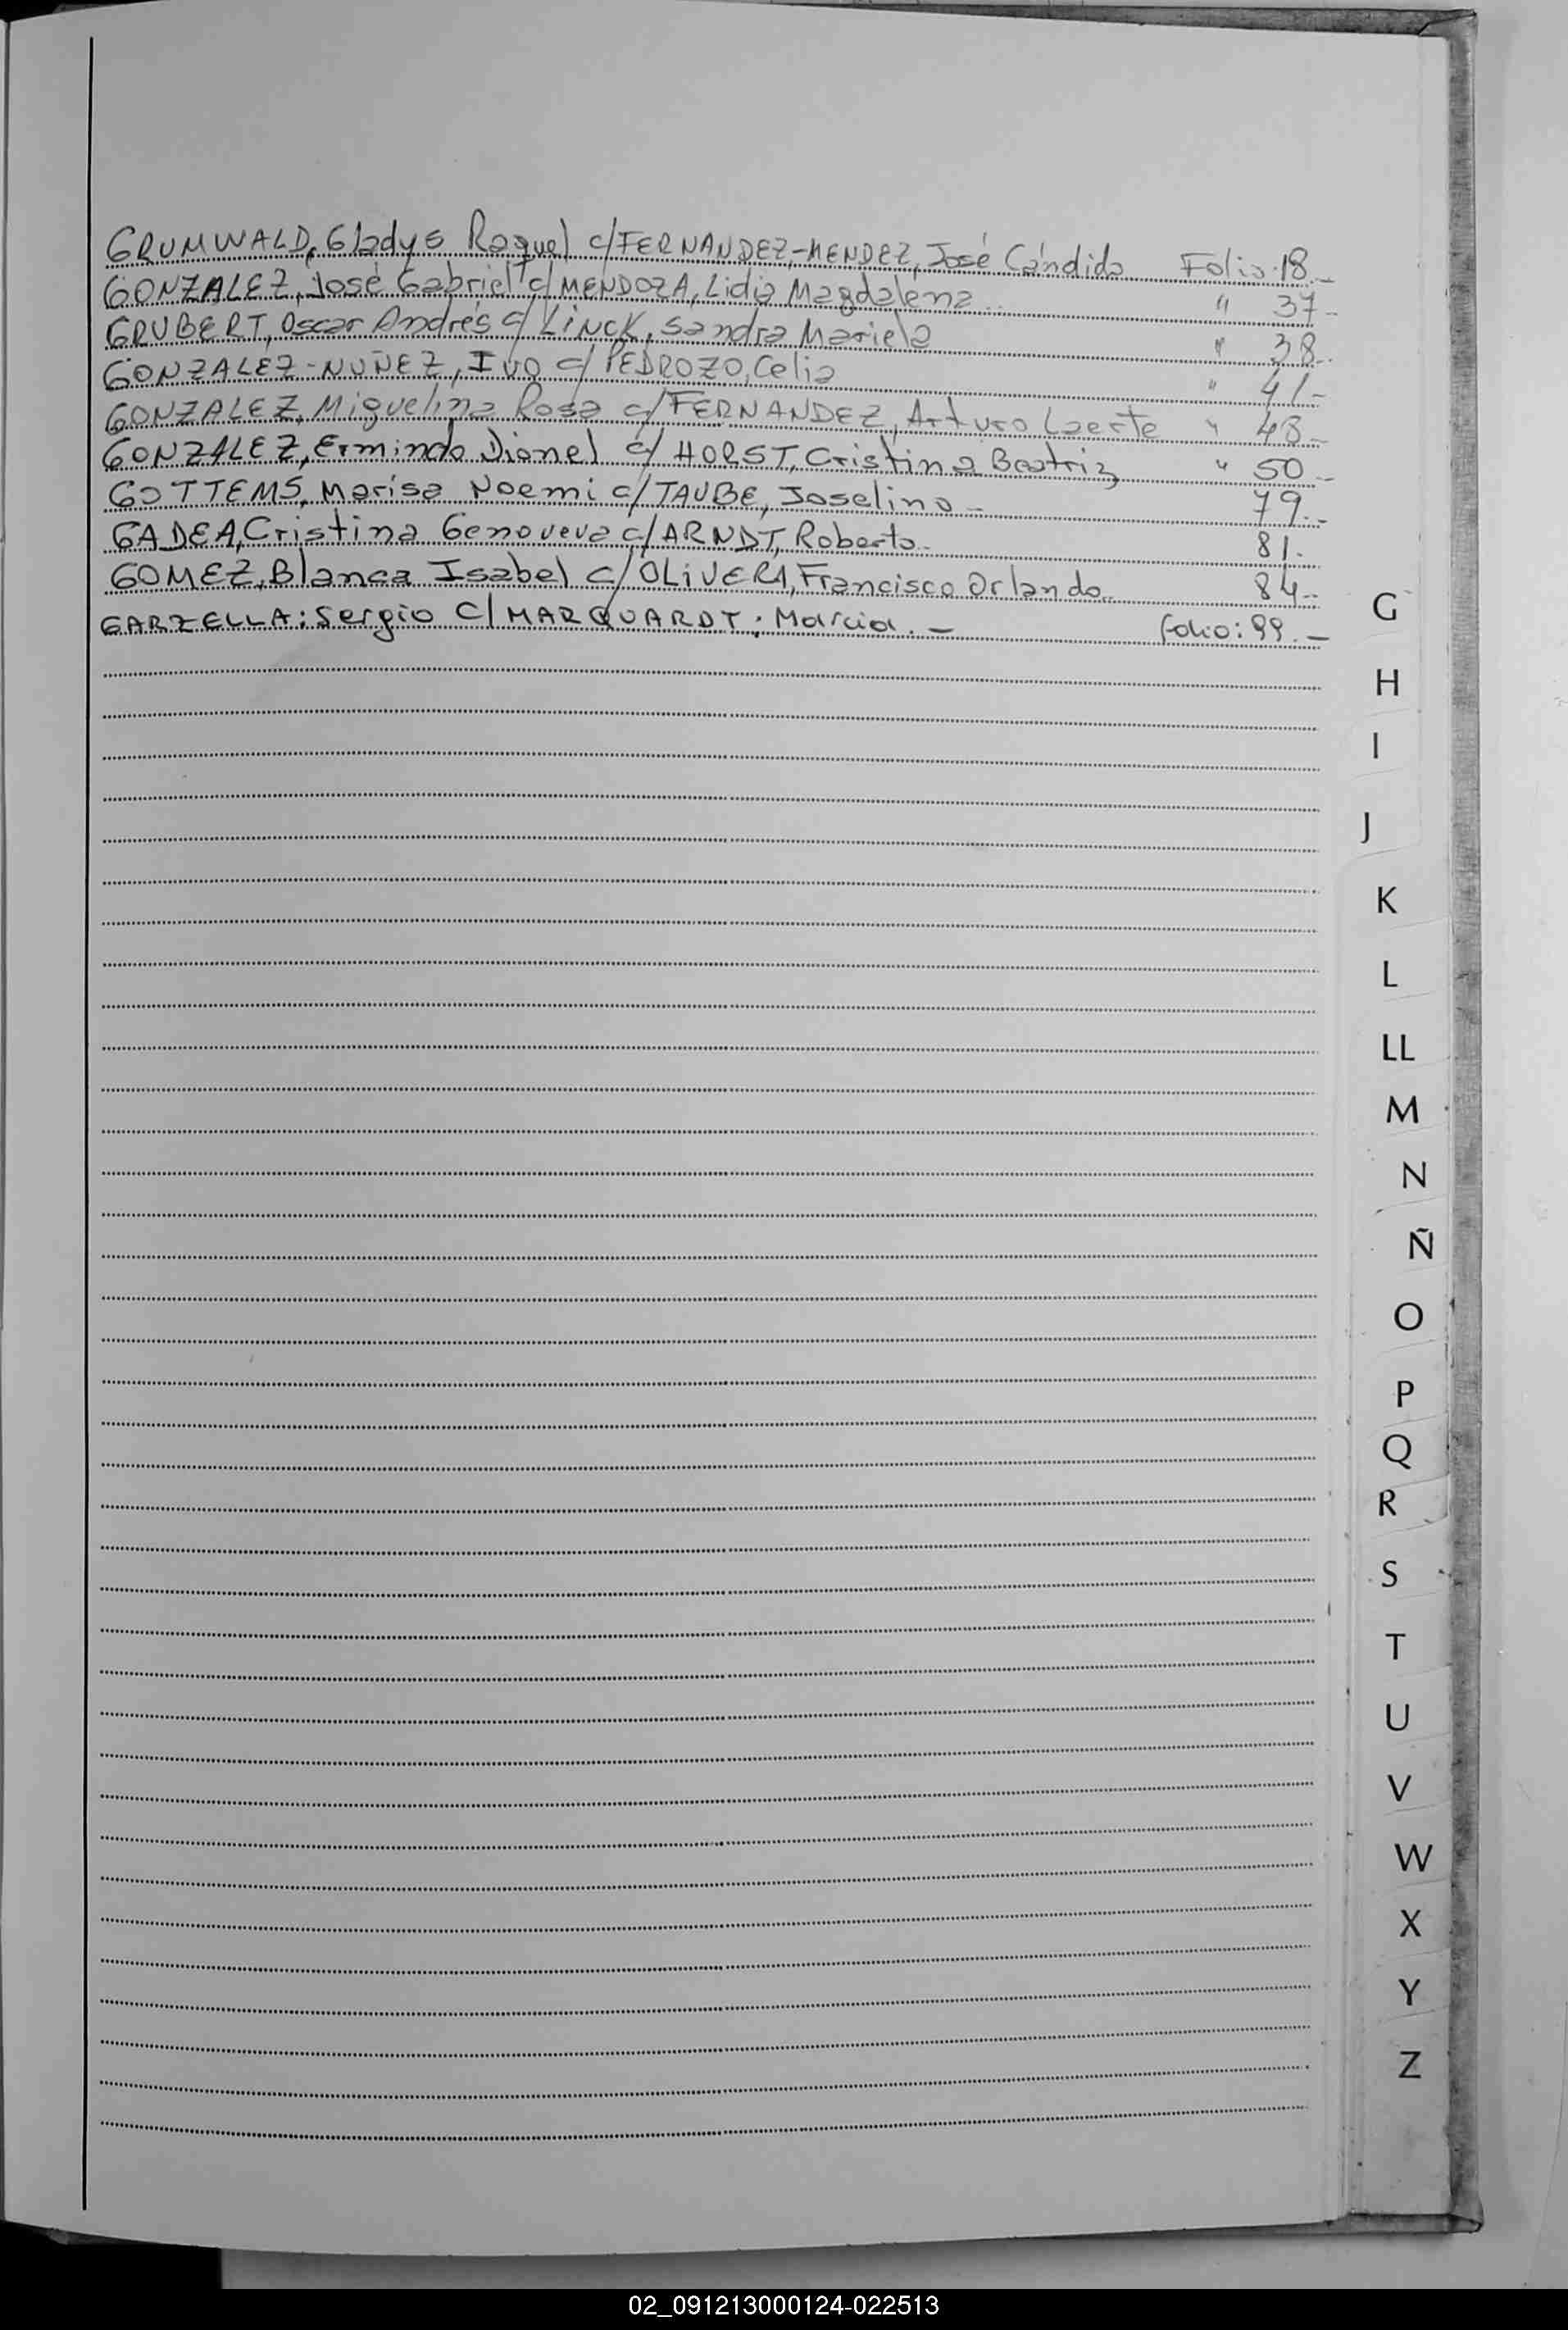 GRUMWALD, Gladys Raquel c/FERNANDEZ-MENDEZ, José Cándido Folio:18.-
GONZALEZ, José Gabriel c/MENDOZA, Lidia Magdalena " 37-
GRUBERT, Oscar Andrés c/LiNCK, Sandra Mariela " 38.
GONZALEZ-NUÑEZ, Ivo c/PEDROZO, Celia " 41-
GONZALEZ, Miguelina Rosa c/FERNANDEZ, Arturo Laerte " 48-
GONZALEZ, Ermindo Dionel c/HORST, Cristina Beatriz " 50-
GOTTEMS, Marisa Noemi c/TAUBE, Joselino- 79.-
GADEA, Cristina Genoveva c/ARNDT, Roberto. 81.
GOMEZ, Blanca Isabel c/OLiVERA, Francisco Orlando. 84.-
GARZELLA: Sergio C/MARQUARDT; Marcia.- folio: 99.-
G
H
I
J
K
L
LL
M
N
Ñ
O
P
Q
R
S
T
U
V
W
X
Y
Z
02_091213000124-022513